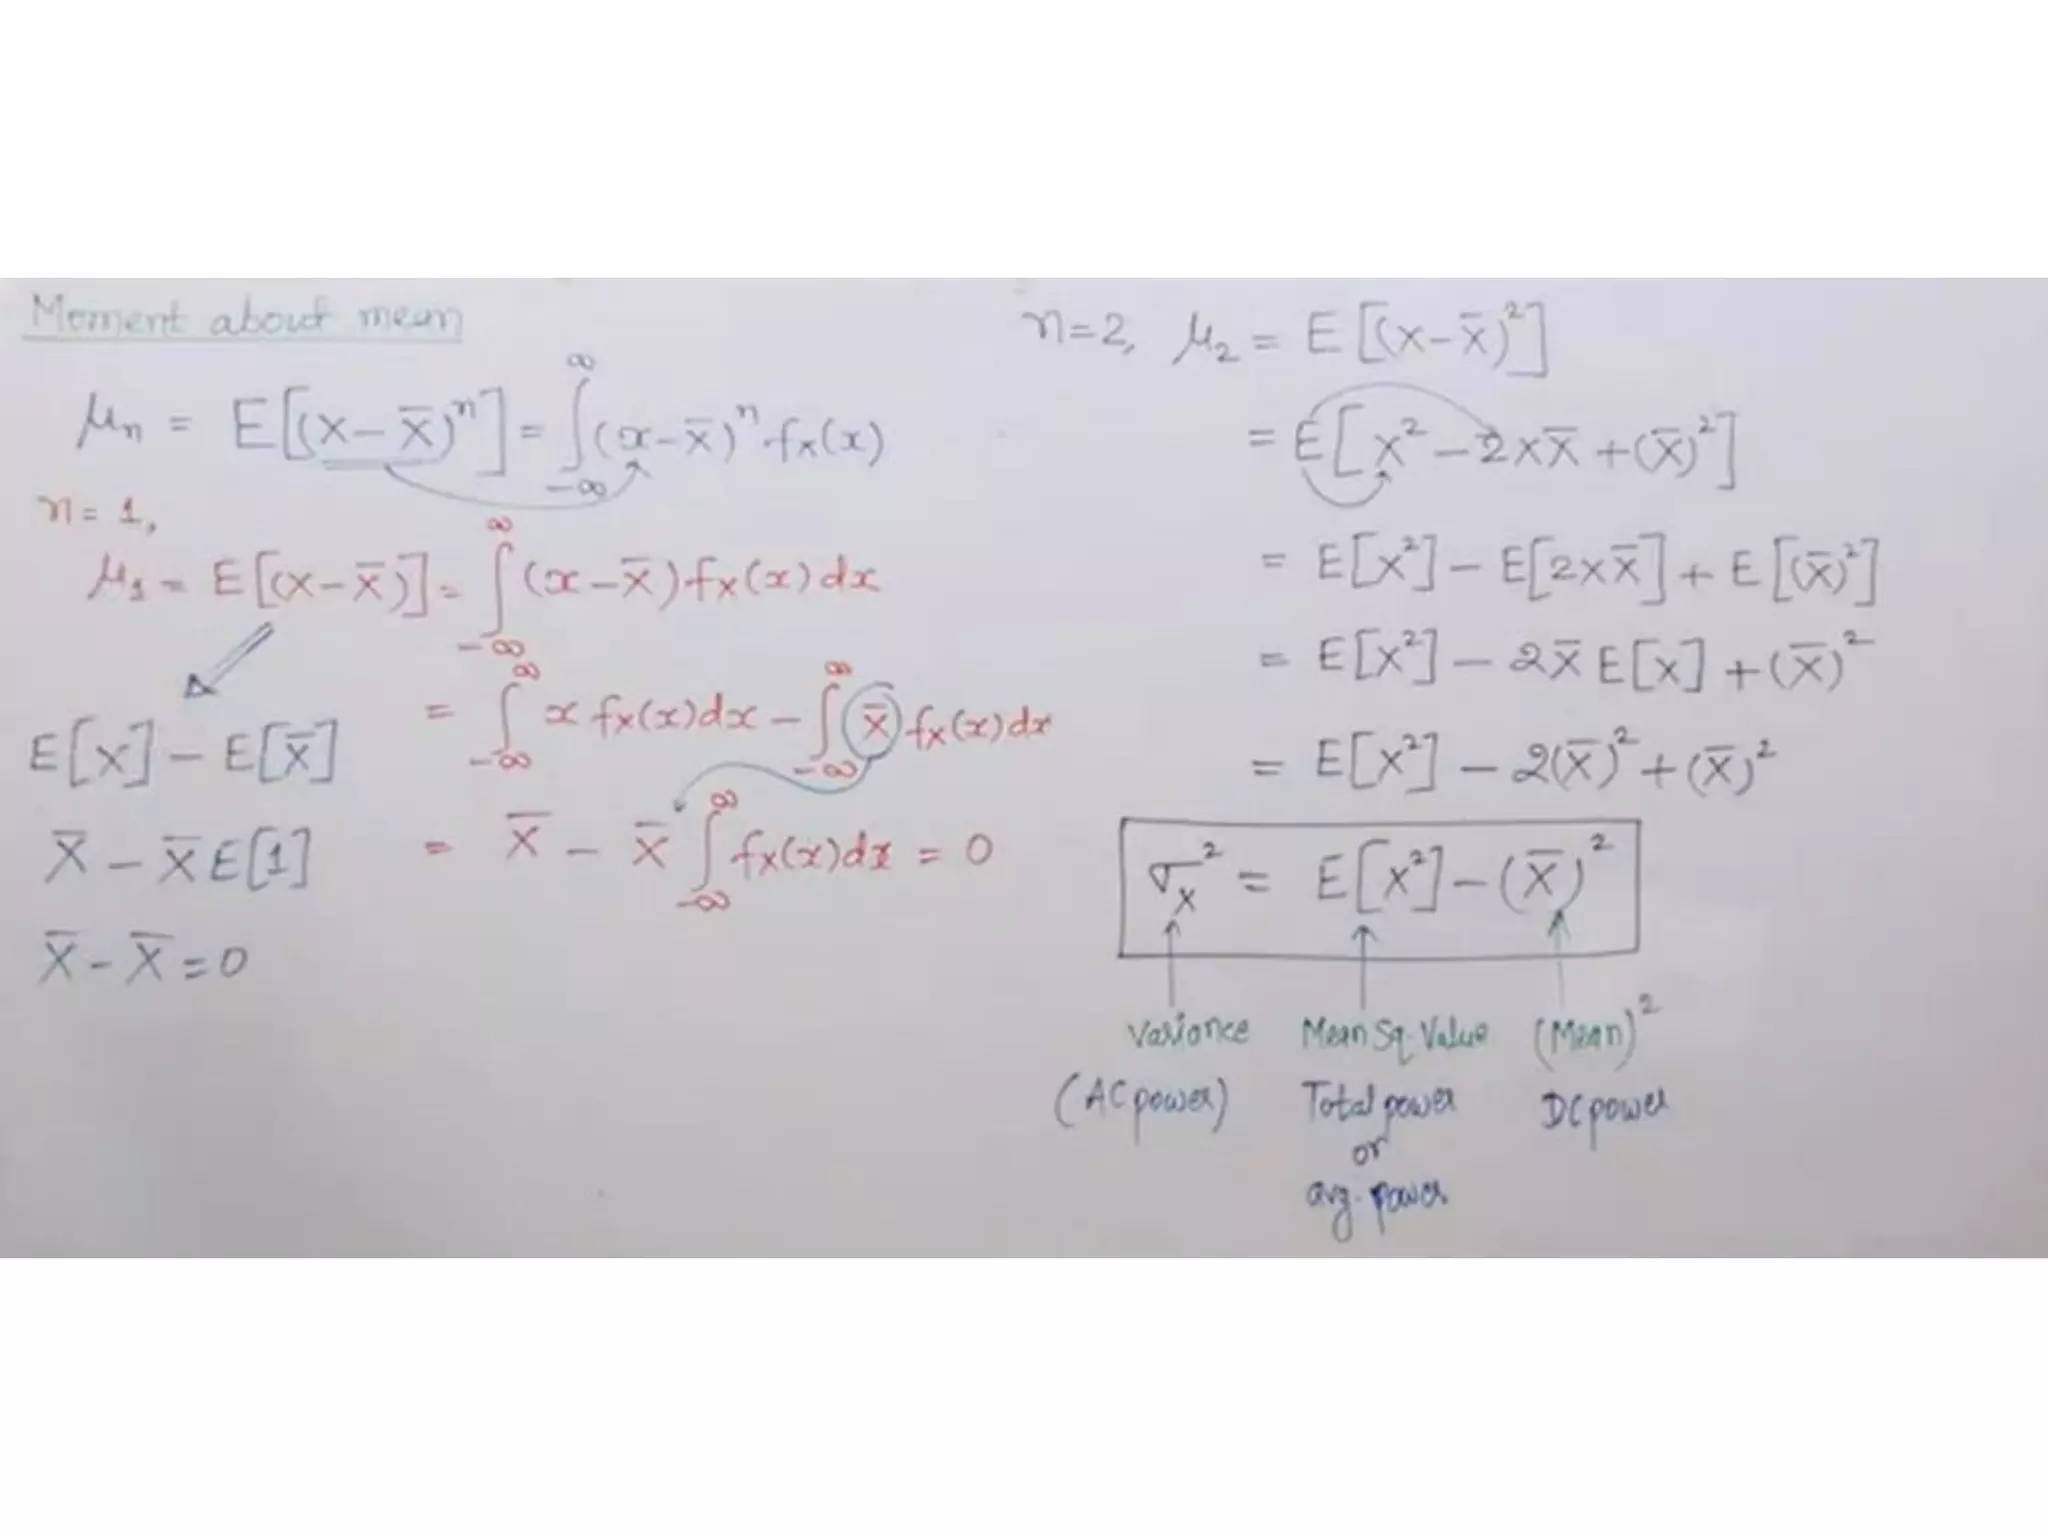 Moment about mean
μₙ = E[(X-X̄)ⁿ] = ∫_{-∞}^{∞} (x-X̄)ⁿ fₓ(x)
n=1,
μ₁ = E[(X-X̄)] = ∫_{-∞}^{∞} (x-X̄) fₓ(x) dx
= ∫_{-∞}^{∞} x fₓ(x) dx - ∫_{-∞}^{∞} X̄ fₓ(x) dx
= X̄ - X̄ ∫_{-∞}^{∞} fₓ(x) dx = 0
E[X] - E[X̄]
X̄ - X̄ E[1]
X̄ - X̄ = 0
n=2, μ₂ = E[(X-X̄)²]
= E[X² - 2XX̄ + (X̄)²]
= E[X²] - E[2XX̄] + E[(X̄)²]
= E[X²] - 2X̄ E[X] + (X̄)²
= E[X²] - 2(X̄)² + (X̄)²
σₓ² = E[X²] - (X̄)²
Variance Mean Sq. Value (Mean)²
(AC power) Total power DC power
or
avg. power